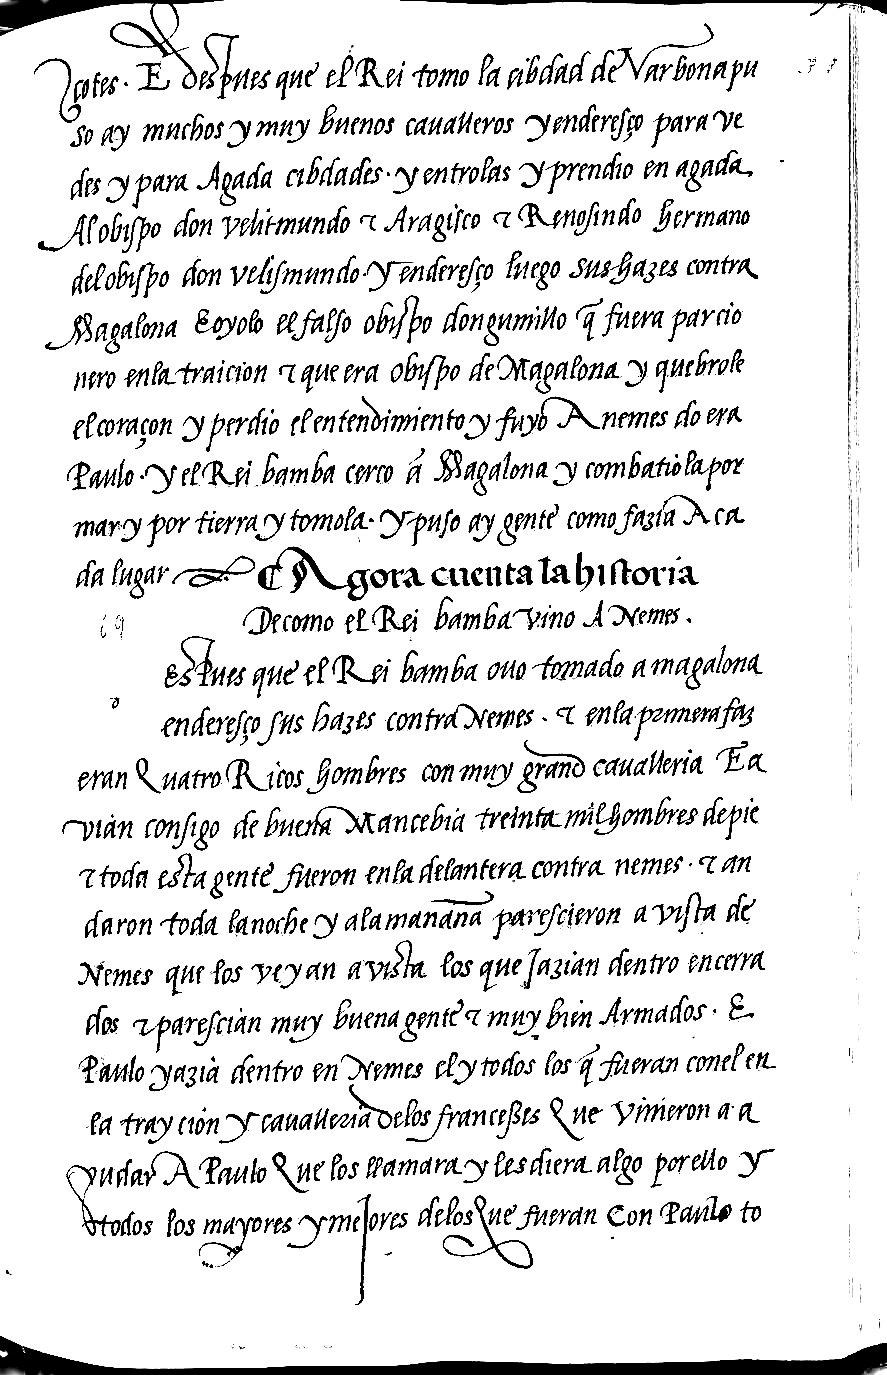 çotes. E despues que el Rei tomo la cibdad de Narbona pu
so ay muchos y muy buenos caualleros y enderesço para ve
des y para Agada cibdades. y entrolas y prendio en agada
Al obispo don velitmundo τ Aragisco τ Renosindo hermano
del obispo don velismundo. y enderesço luego sus hazes contra
Magalona E oyolo el falso obispo don gumillo q̃ fuera parcio
nero en la traicion τ que era obispo de Magalona y quebrole
el coraçon y perdio el entendimiento y fuyo A nemes do era
Paulo. y el Rei bamba cerco a Magalona y combatiola por
mar y por tierra y tomola. y puso ay gente como fazia A ca
da lugar ¶ Agora cuenta la historia
De como el Rei bamba vino A Nemes.
69
Espues que el Rei bamba ouo tomado a magalona
d
enderesço sus hazes contra Nemes. τ en la primera faz
eran Quatro Ricos hombres con muy grand caualleria E a
vian consigo de buena Mancebia treinta mil hombres de pie
τ toda esta gente fueron en la delantera contra nemes. τ an
daron toda la noche y a la mañana parescieron a vista de
Nemes que los veyan a vista los que Jazian dentro encerra
dos τ parescian muy buena gente τ muy bien Armados. E
Paulo yazia dentro en Nemes el y todos los q̃ fueran con el en
la traycion y caualleria de los franceses Que vinieron a a
yudar A Paulo Que los llamara y les diera algo por ello y
todos los mayores y mejores de los Que fueran Con Paulo to